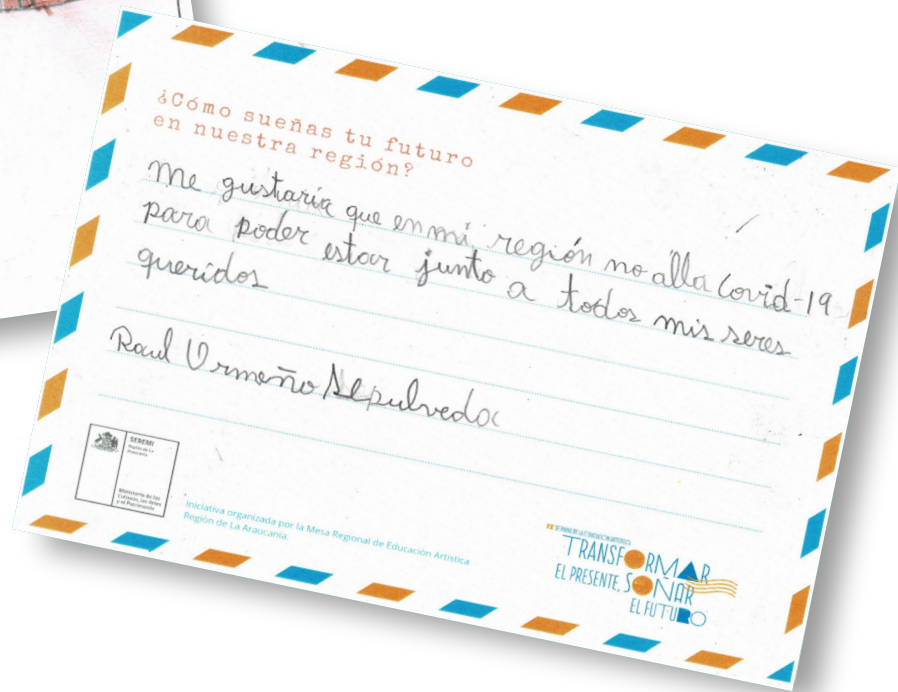 ¿Cómo sueñas tu futuro
en nuestra región?
Me gustaria que en mi región no alla Covid-19
para poder estar junto a todos mis seres
queridos
Raul Urmeño Sepulveda
SEREMI
Región de La
Araucanía
Ministerio de las
Culturas, las Artes
y el Patrimonio
Iniciativa organizada por la Mesa Regional de Educación Artística
Región de La Araucanía.
SEMANA DE LA EDUCACIÓN ARTÍSTICA
TRANSFORMAR
EL PRESENTE, SOÑAR
EL FUTURO